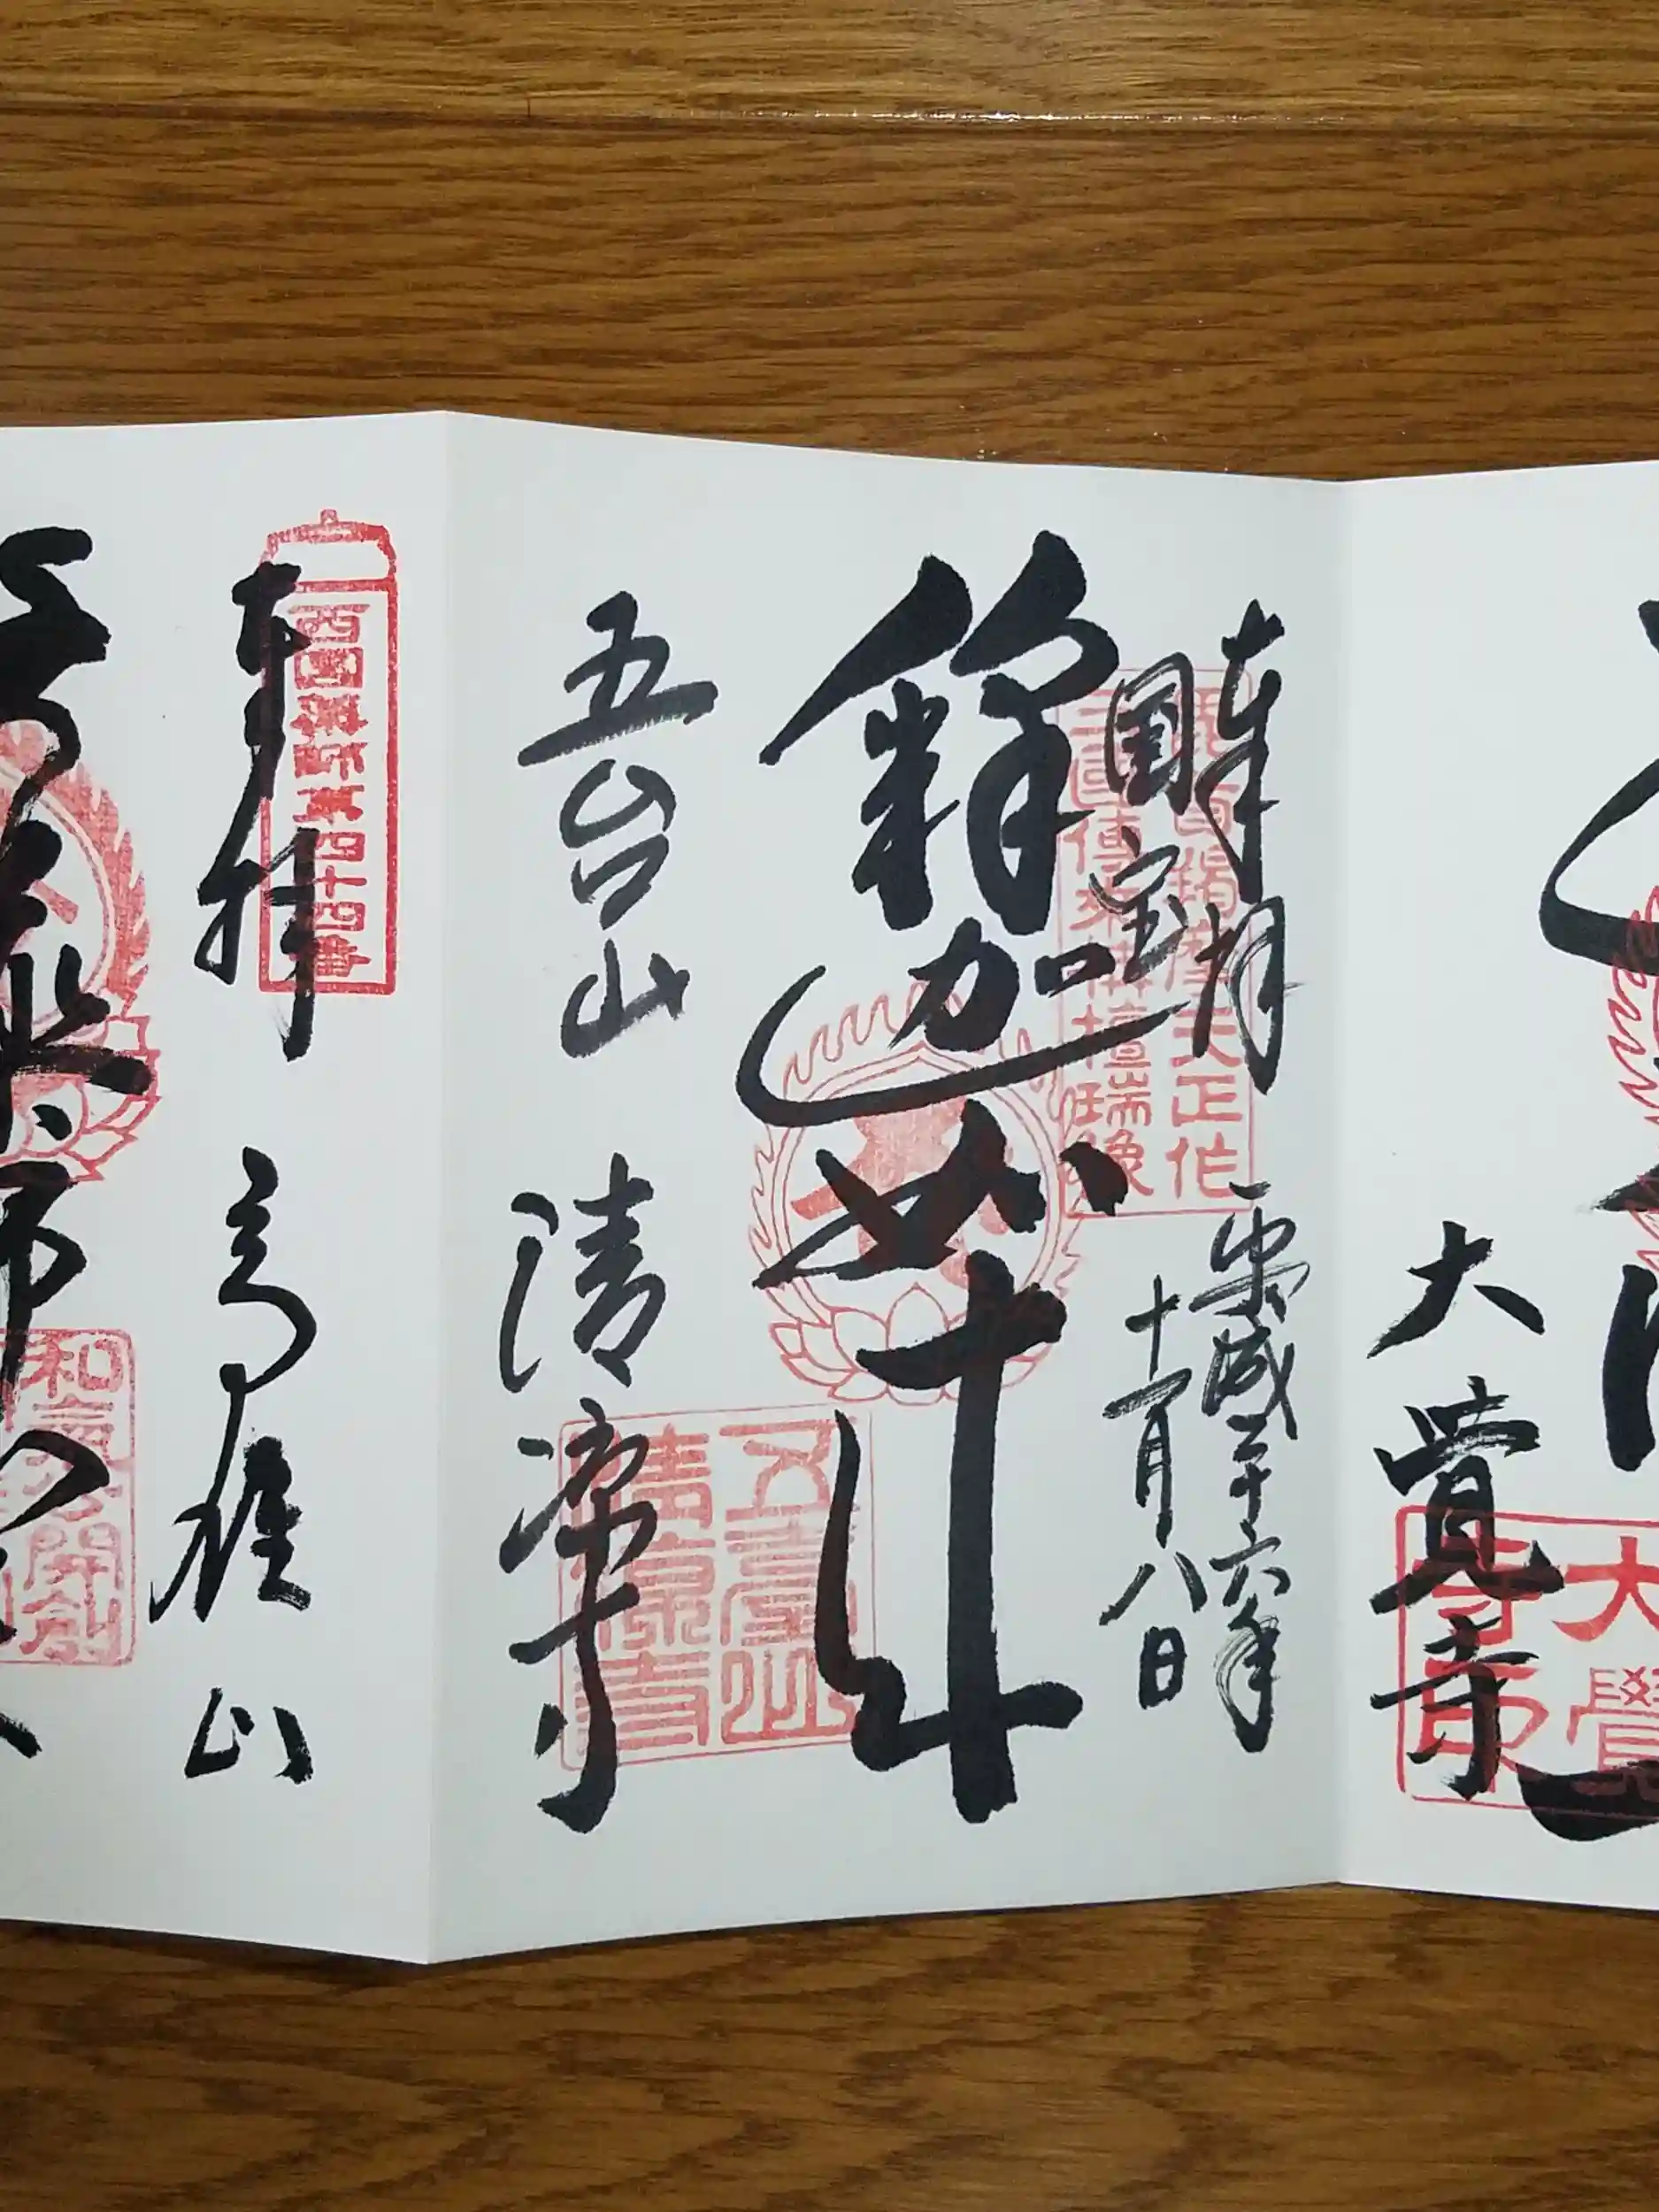 大覚寺
大覺
寺印
奉拝
平成二十六年
十一月八日
国宝
毘首羯摩天正作
三國傳来栴檀瑞像
釋迦如来
五台山 清凉寺
五臺山
清凉寺
奉拝 高雄山
西國薬師第四十四番